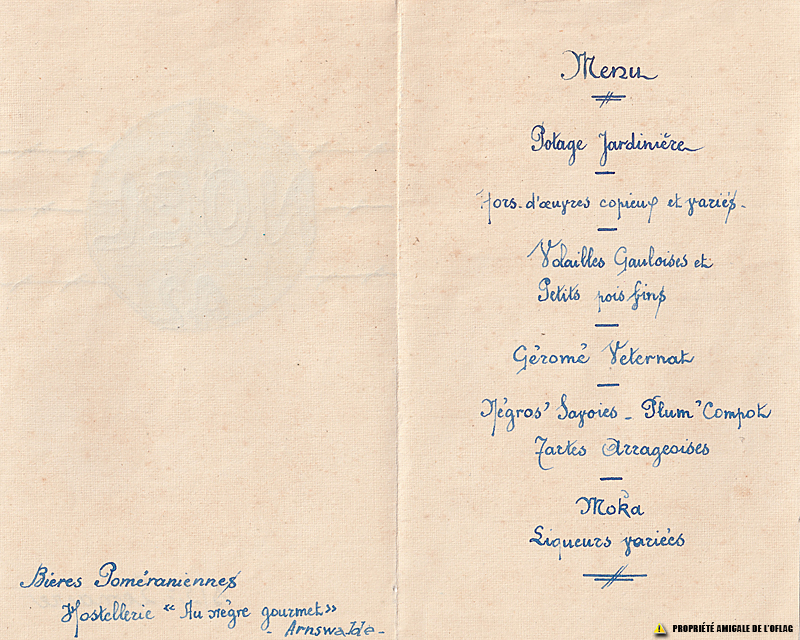 Bières Poméraniennes
Hostellerie “Au nègre gourmet”
- Arnswalde -
Menu
Potage Jardinière
Hors-d'œuvres copieux et variés.
Volailles Gauloises et
Petits pois fins
Géromé Veternat
Négros' Savoies - Plum' Compot
Tartes Arrageoises
Moka
Liqueurs variées
NOEL
PROPRIÉTÉ AMIGALE DE L'OFLAG